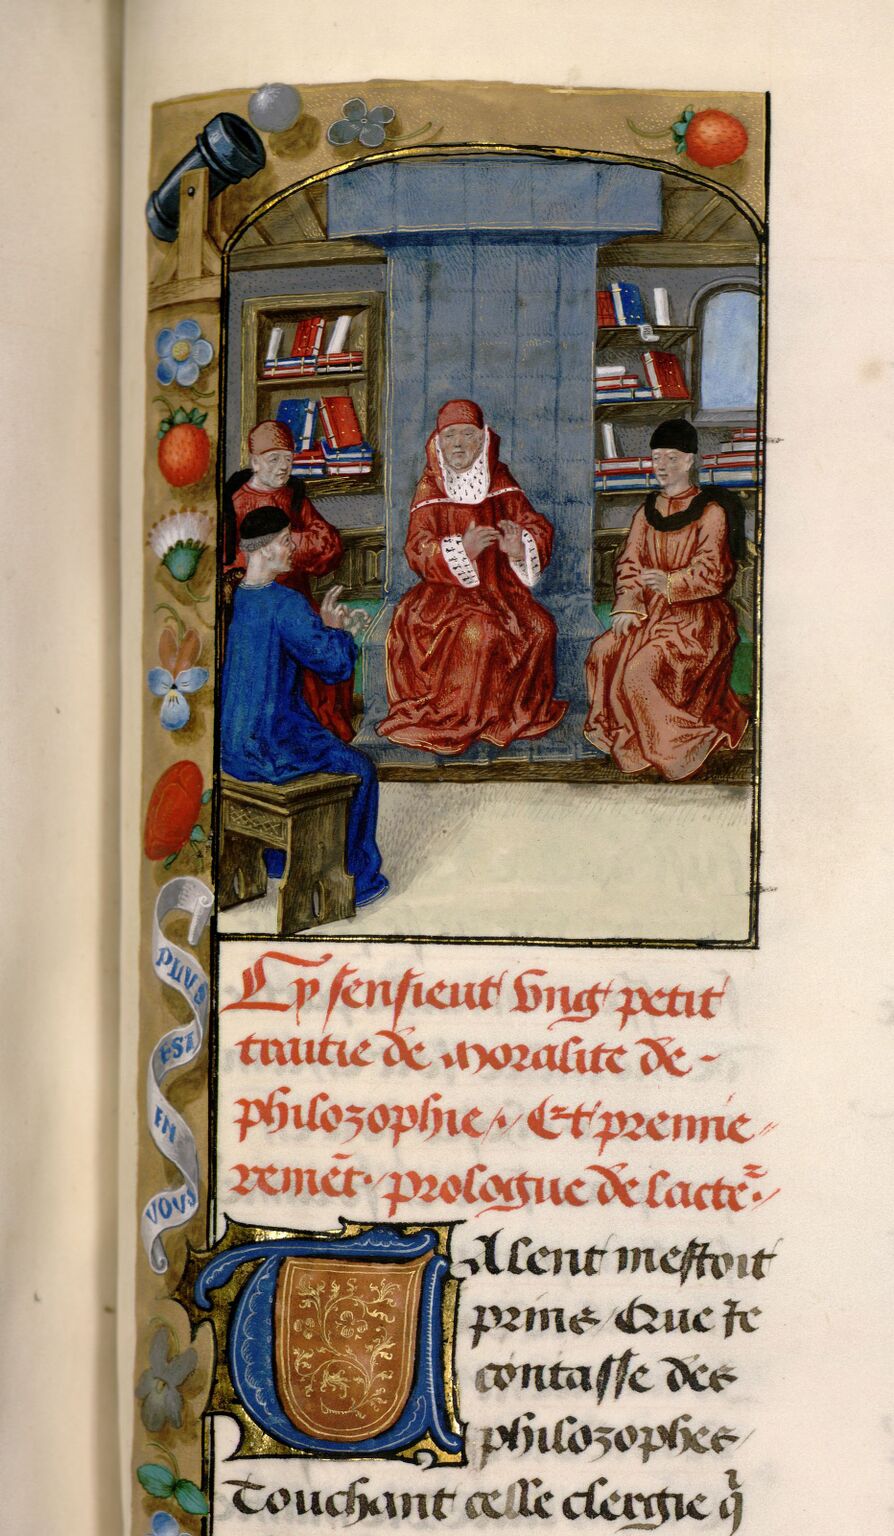 PLUS
EST
EN
VOUS
Cy senssieut vng petit
traitie de moralite de-
philozophie. Et premie
remēt. prologue de lacte~.
Talent mestoit
prins / Que ie
contasse des
philozophes
Touchant celle clergie q̄